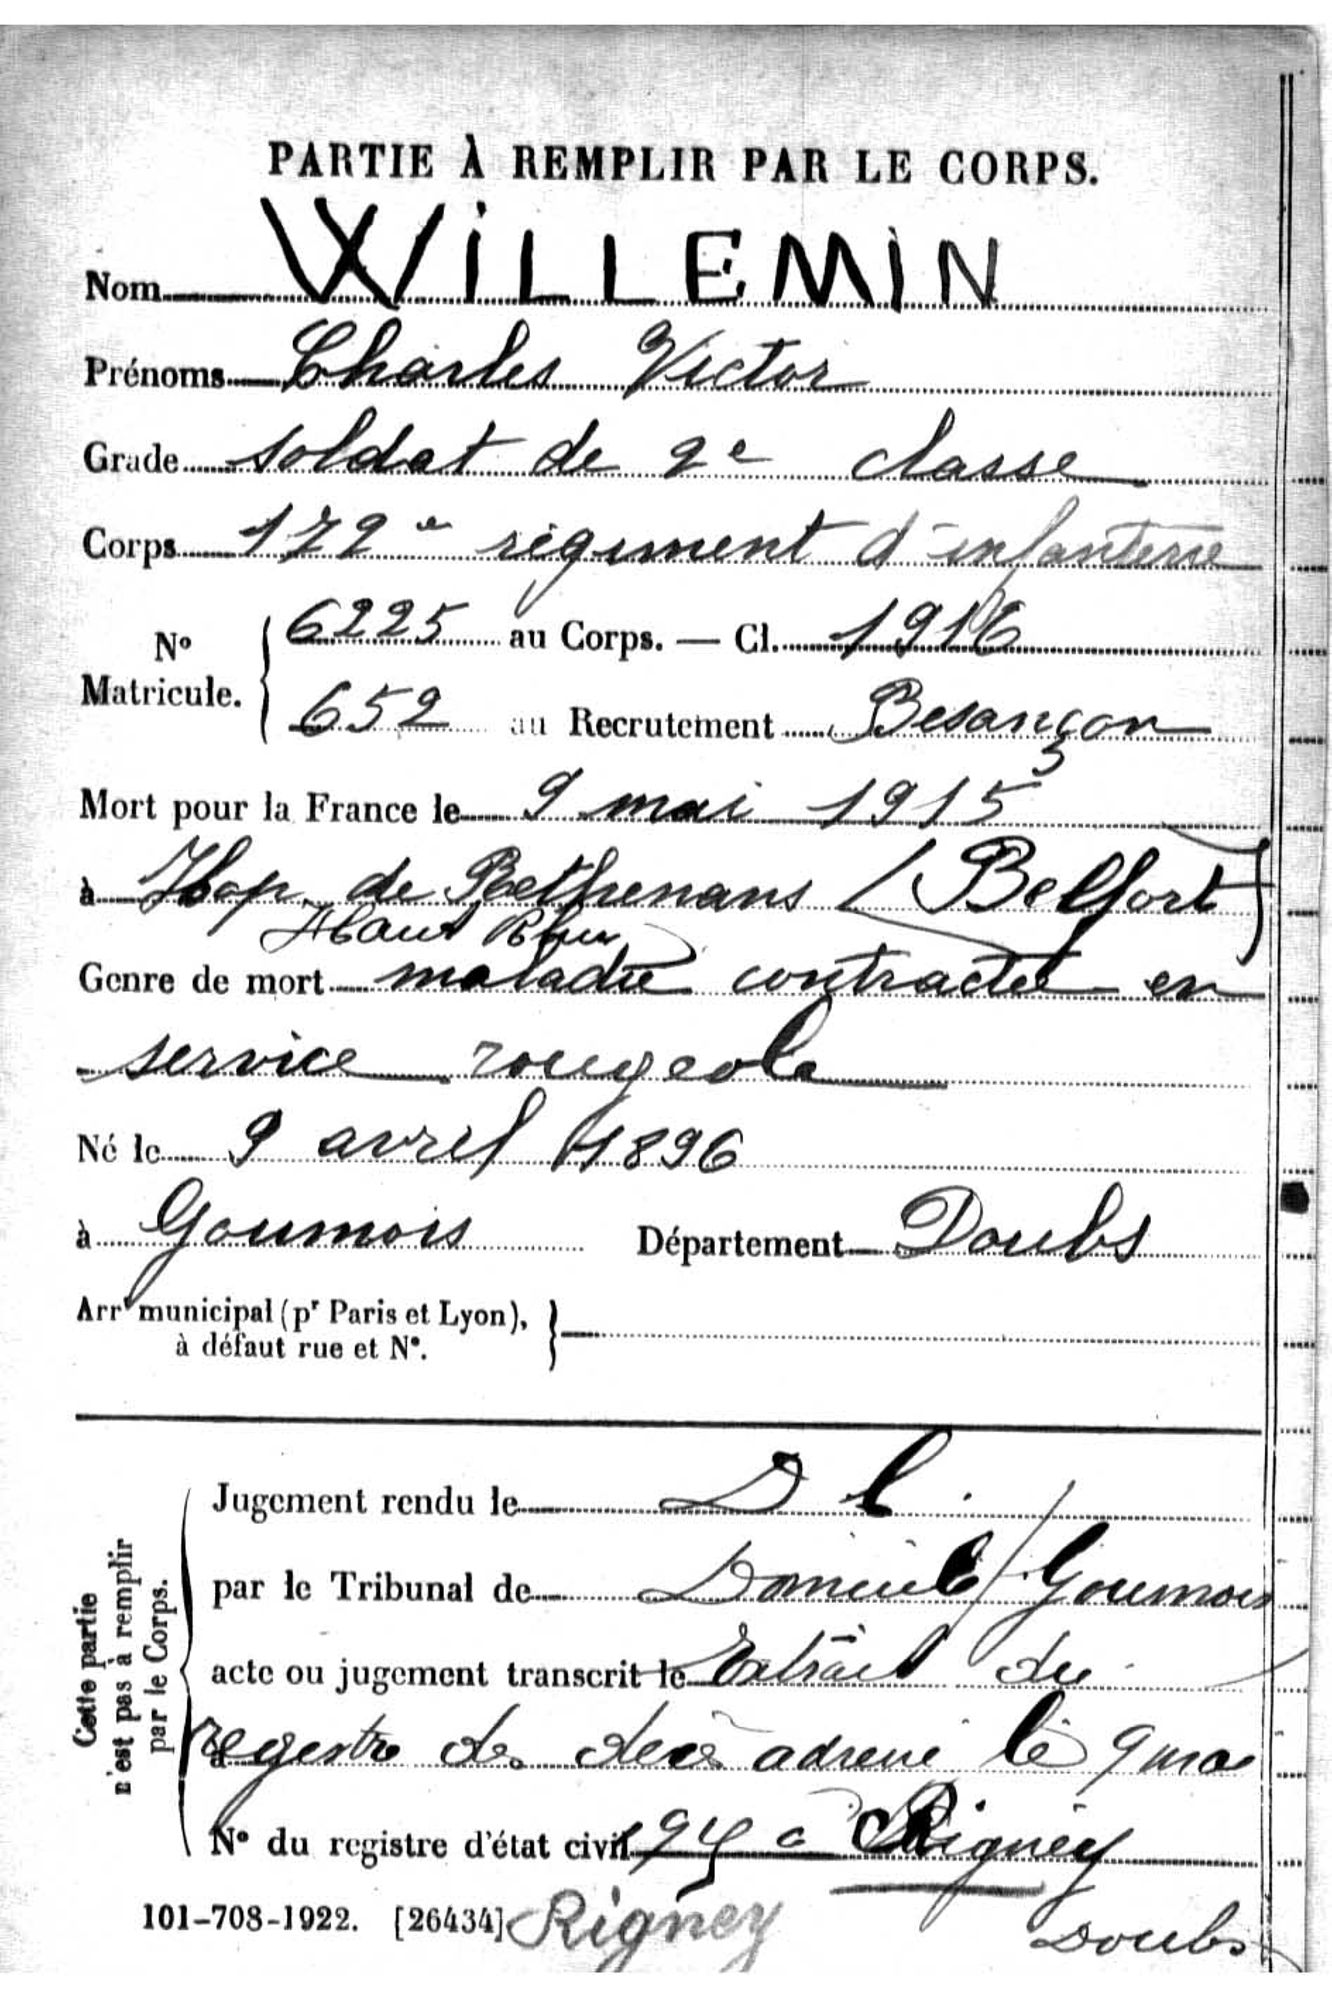 PARTIE À REMPLIR PAR LE CORPS.
Nom WiLLEMiN
Prénoms Charles Victor
Grade soldat de 2e classe
Corps 172e régiment d'infanterie
No Matricule. 6225 au Corps. — Cl. 1916
652 au Recrutement Besançon
Mort pour la France le 9 mai 1915
à Hop. de Bethenans (Belfort)
Haut Rhin
Genre de mort maladie contractée en
service rougeole
Né le 9 avril 1896
à Goumois Département Doubs
Arrt municipal (pr Paris et Lyon),
à défaut rue et No.
Cette partie
n'est pas à remplir
par le Corps.
Jugement rendu le D L.
par le Tribunal de Domicile / Goumois
acte ou jugement transcrit le Extrait du
à registre de décès adressé le 9 mai
No du registre d'état civil 1915 à Rigney
101-708-1922. [26434] Rigney Doubs